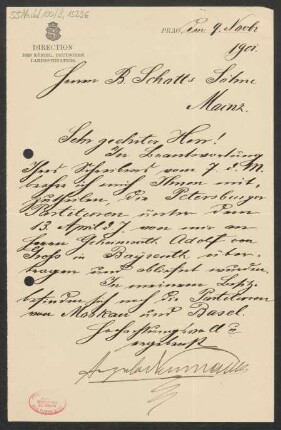 55 Nachl 100/B, 15236
DIRECTION
DES KÖNIGL. DEUTSCHEN
LANDESTHEATERS
PRAG, den 9. Novb.
1901.
Herrn B. Schott's Söhne
Mainz.
Sehr geehrter Herr!
In Beantwortung
Ihres Schreibens vom 7. d. M.
beehre ich mich Ihnen mit,
zutheilen, die Petersburger
Partituren unter dem
13. April d. J. von mir an
Herrn Adolf von
Gross in Bayreuth über-
tragen und abliefert wurden.
In meinem Besitz
befinden sich noch die Partituren
von Moskau und Basel.
Hochachtungsvoll
ergebenst
Angelo Neumann